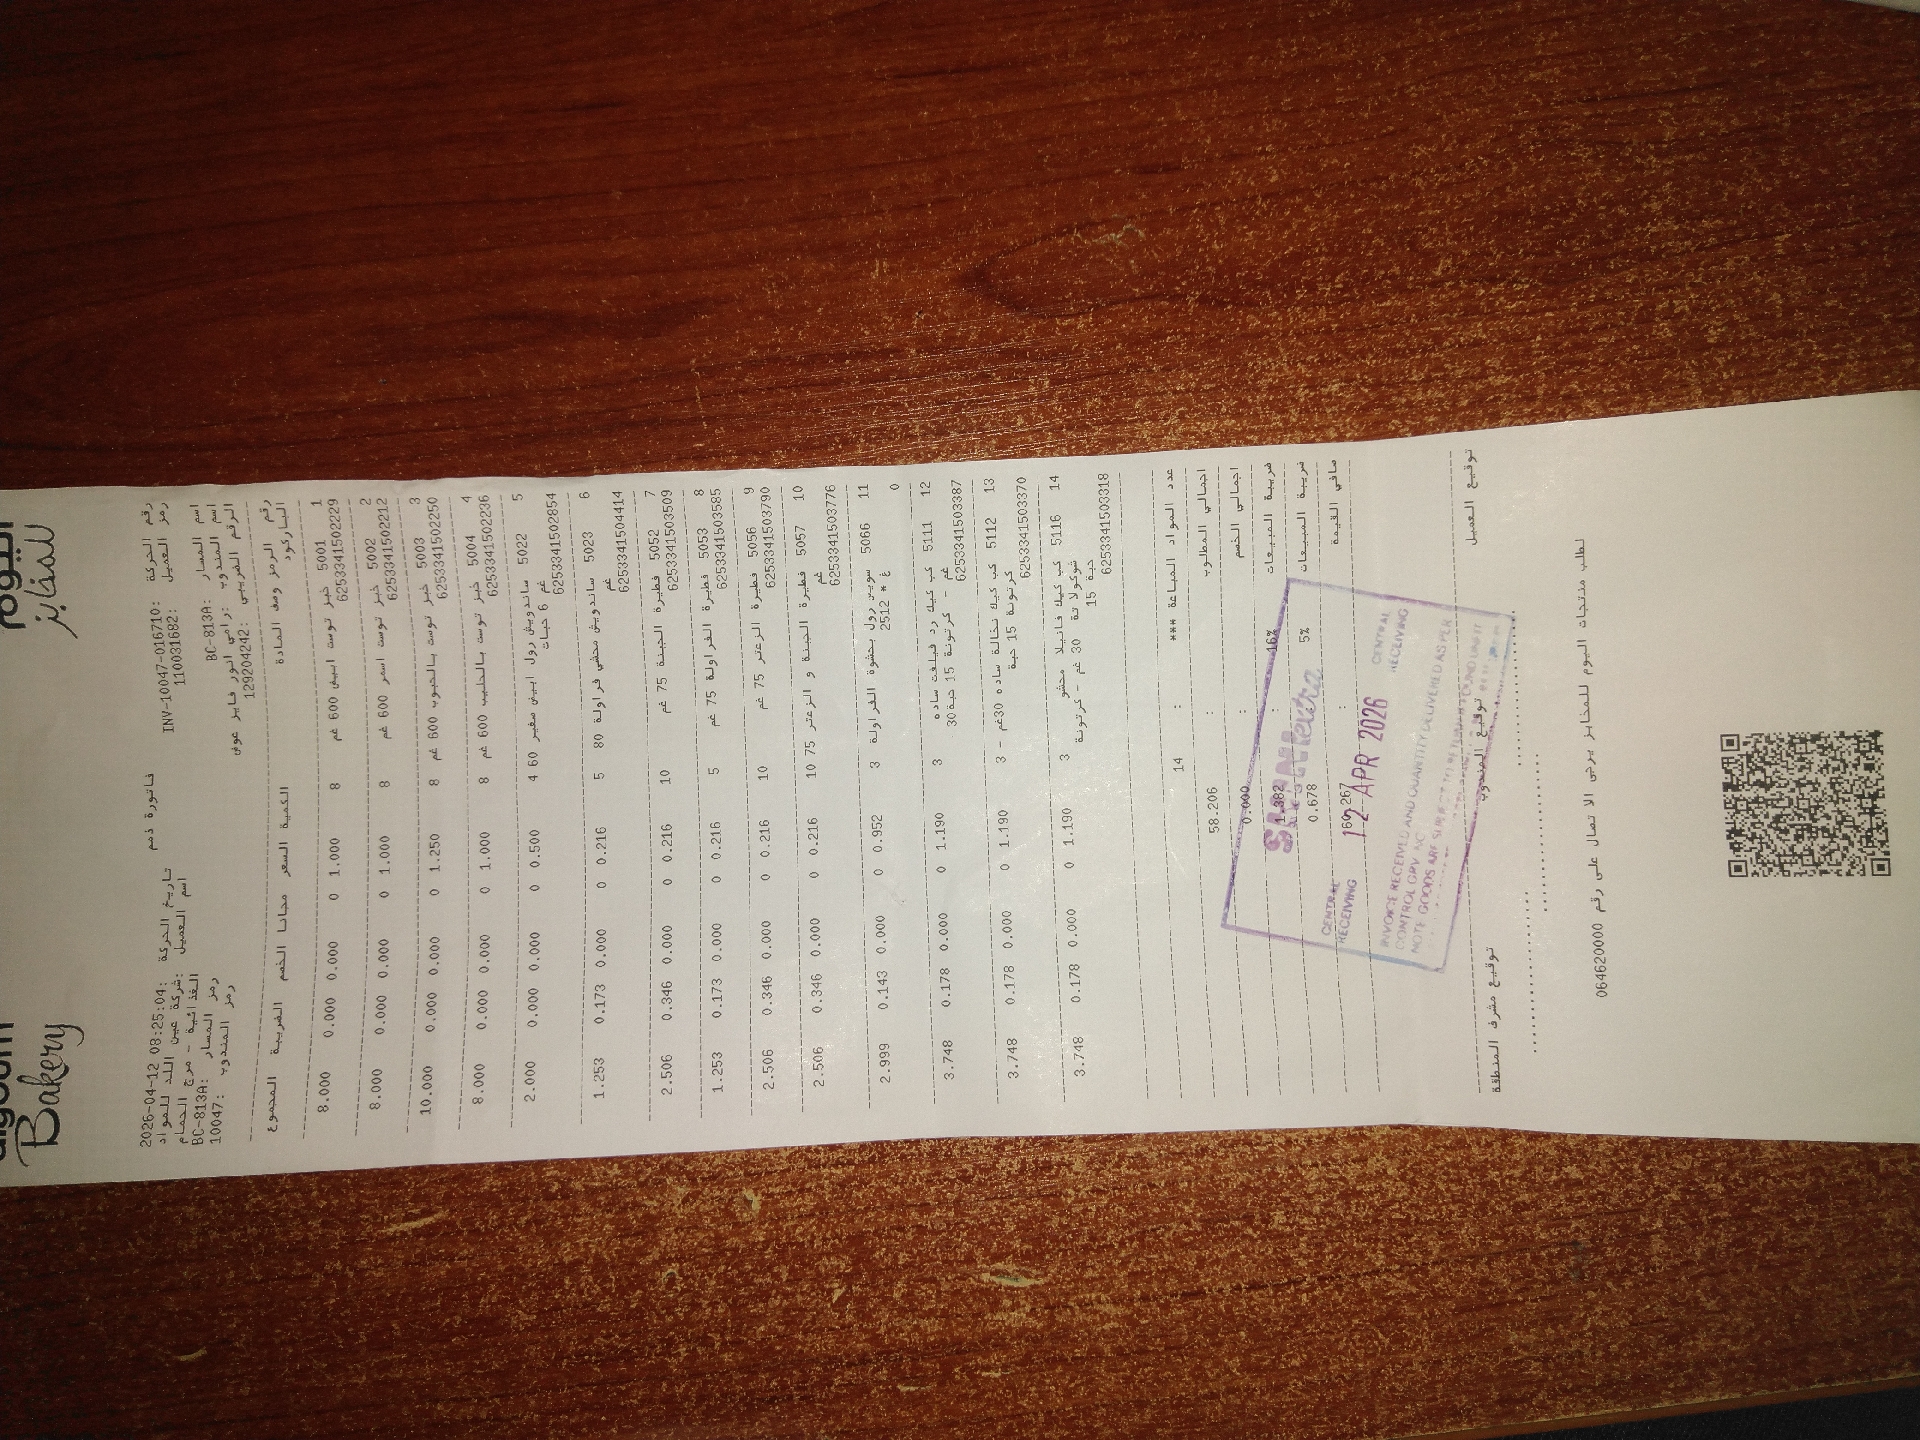 اليوم
للمخابز
Bakery
رقم الحركة INV-10047-016710: فاتورة ذمم تاريخ الحركة 2026-04-12 08:25:04:
رمز العميل 110031682: اسم العميل شركة عين اللد للمواد
الغذائية - مرج الحمام
اسم المسار BC-813A: رمز المسار BC-813A:
اسم المندوب رامي انور فايز عوض: رمز المندوب 10047:
الرقم الضريبي 129204242:
رقم الرمز وصف المادة الكمية السعر مجانا الخصم الضريبة المجموع
الباركود
1 5001 خبز توست ابيض 600 غم 8 1.000 0 0.000 0.000 8.000
6253341502229
2 5002 خبز توست اسمر 600 غم 8 1.000 0 0.000 0.000 8.000
6253341502212
3 5003 خبز توست بالحبوب 600 غم 8 1.250 0 0.000 0.000 10.000
6253341502250
4 5004 خبز توست بالحليب 600 غم 8 1.000 0 0.000 0.000 8.000
6253341502236
5 5022 ساندويش رول ابيض صغير 60 4 0.500 0 0.000 0.000 2.000
غم 6 حبات
6253341502854
6 5023 ساندويش محشي فراولة 80 5 0.216 0 0.000 0.173 1.253
غم
6253341504414
7 5052 فطيرة الجبنة 75 غم 10 0.216 0 0.000 0.346 2.506
6253341503509
8 5053 فطيرة الفراولة 75 غم 5 0.216 0 0.000 0.173 1.253
6253341503585
9 5056 فطيرة الزعتر 75 غم 10 0.216 0 0.000 0.346 2.506
6253341503790
10 5057 فطيرة الجبنة و الزعتر 75 10 0.216 0 0.000 0.346 2.506
غم
6253341503776
11 5066 سويس رول بحشوة الفراولة 3 0.952 0 0.000 0.143 2.999
2512 * غ
0
12 5111 كب كيك رد فيلفت ساده 3 1.190 0 0.000 0.178 3.748
30 غم - كرتونة 15 حبة
6253341503387
13 5112 كب كيك نخالة ساده 30غم - 3 1.190 0 0.000 0.178 3.748
كرتونة 15 حبة
6253341503370
14 5116 كب كيك فانيلا محشو 3 1.190 0 0.000 0.178 3.748
شوكولا تة 30 غم - كرتونة
15 حبة
6253341503318
عدد المواد المباعة *** : 14
اجمالي المطلوب : 58.206
اجمالي الخصم : 0.000
ضريبة المبيعات 16% : 1.382
ضريبة المبيعات 5% : 0.678
صافي القيمة : 60.267
CENTRAL RECEIVING
12 APR 2026
CENTRAL RECEIVING
INVOICE RECEIVED AND QUANTITY DELIVERED AS PER
CONTROL GRV
NOTE GOODS ARE
توقيع العميل توقيع المندوب توقيع مشرف المنطقة
لطلب منتجات اليوم للمخابز يرجى الا تصال على رقم 064620000